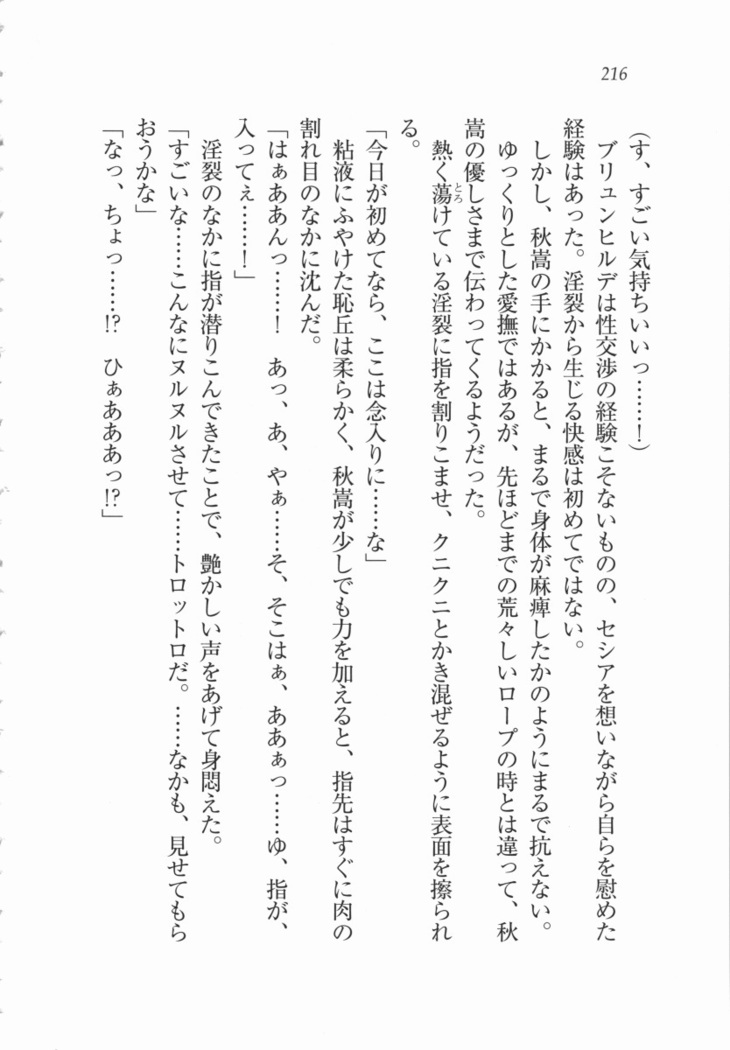 216
(す、すごい気持ちいいっ……！)
ブリュンヒルデは性交渉の経験こそないものの、セシアを想いながら自らを慰めた
経験はあった。淫裂から生じる快感は初めてではない。
しかし、秋嵩の手にかかると、まるで身体が麻痺したかのようにまるで抗えない。
ゆっくりとした愛撫ではあるが、先ほどまでの荒々しいロープの時とは違って、秋
嵩の優しさまで伝わってくるようだった。
熱く蕩けている淫裂に指を割りこませ、クニクニとかき混ぜるように表面を擦られ
とろ
る。
「今日が初めてなら、ここは念入りに……な」
粘液にふやけた恥丘は柔らかく、秋嵩が少しでも力を加えると、指先はすぐに肉の
割れ目のなかに沈んだ。
「はぁああんっ……！　あっ、あ、やぁ……そ、そこはぁ、ああぁっ……ゆ、指が、
入ってぇ……！」
淫裂のなかに指が潜りこんできたことで、艶かしい声をあげて身悶えた。
「すごいな……こんなにヌルヌルさせて……トロットロだ。……なかも、見せてもら
おうかな」
「なっ、ちょっ……!?　ひぁあああっ!?」